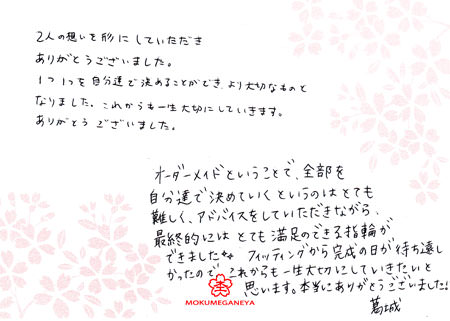 2人の想いを形にしていただき
ありがとうございました。
1つ1つを自分達で決めることができ、より大切なものと
なりました。これからも一生大切にしていきます。
ありがとうございました。
オーダーメイドということで、全部を
自分達で決めていくというのはとても
難しく、アドバイスをしていただきながら、
最終的にはとても満足のできる指輪が
できました。フィッティングから完成の日が待ち遠し
かったので、これからも一生大切にしていきたいと
思います。本当にありがとうございました!
葛城
MOKUMEGANEYA